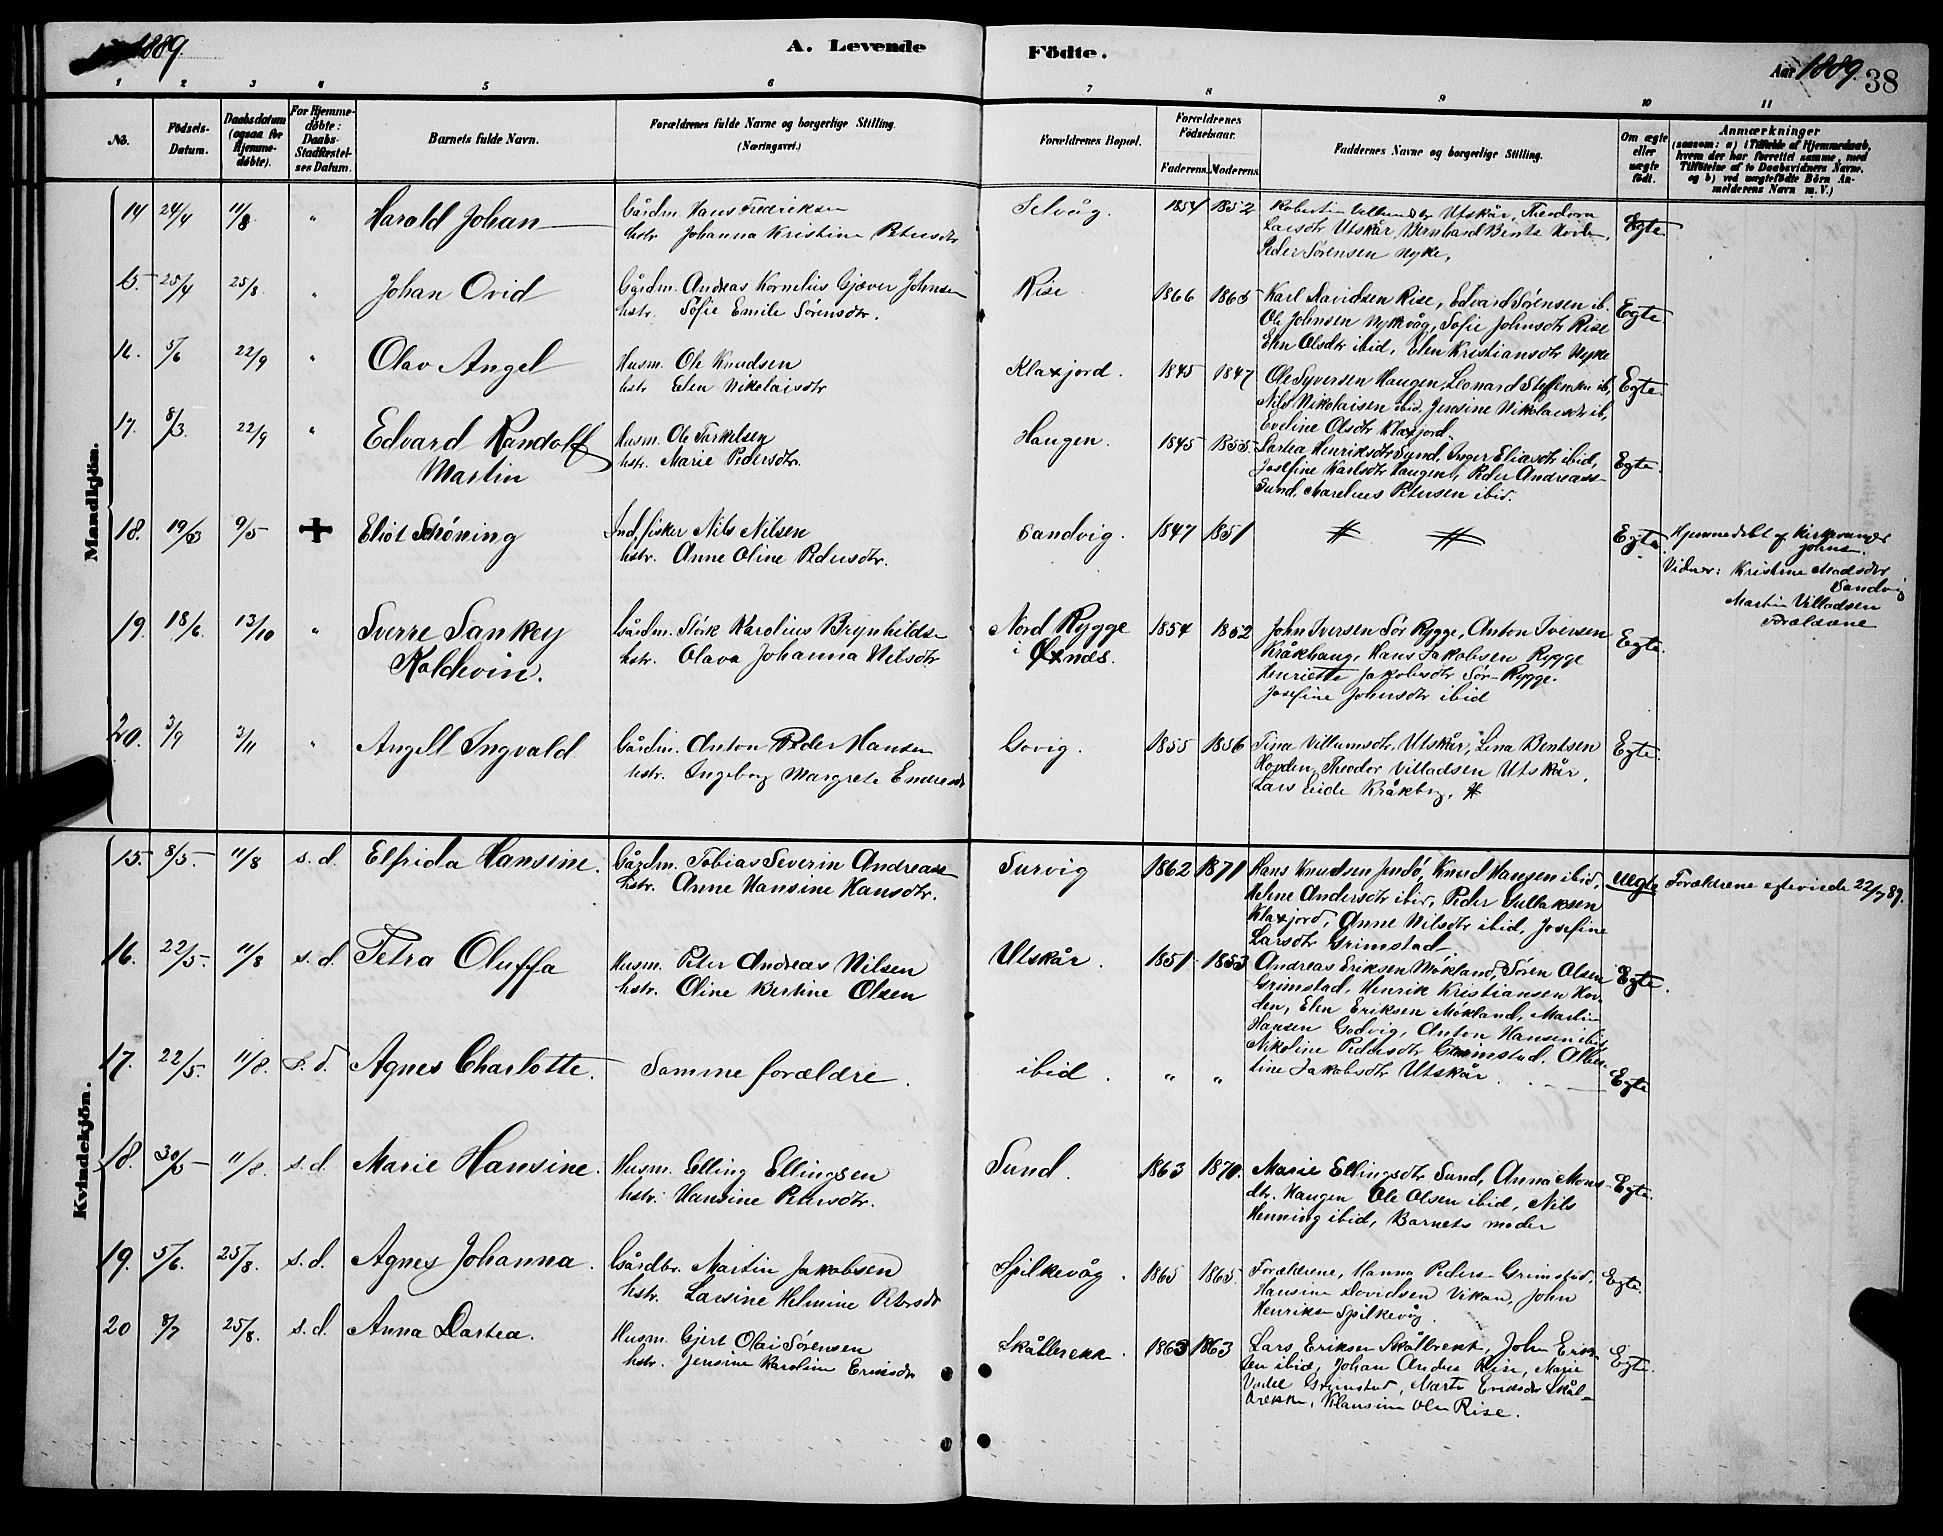 1889.
A. Levende
Födte.
Aar 1889.
38
1 2 3 4 5 6 7 8 9 10 11
No.
Födsels-
Datum.
Daabsdatum
(ogsaa for
Hjemme-
døbte).
For Hjemme-
døbte:
Daabs-
Stadfæstel-
ses Datum.
Barnets fulde Navn.
Forældrenes fulde Navne og borgerlige Stilling.
(Næringsvei.)
Forældrenes Bopæl.
Forældrenes
Födselsaar.
Faderens. Moderens.
Faddernes Navne og borgerlige Stilling.
Om ægte
eller
uægte
født.
Anmærkninger
(saasom: a) i Tilfælde af Hjemmedaab,
hvem der har forrettet samme, med
Tilføielse af to Daabsvidners Navne.
og b) ved uægtefødte Börn An-
melderens Navn m. V.)
Mandkjön.
14 24/4 11/8 " Harold Johan
Gårdm. Hans Fredriksen
hstr. Johanna Kristine Petersdtr
Selvåg. 1854 1852
Utskår, Theodora
Larsdtr Utskår, Bernhard Bents
Peder Sørensen Nyke.
Egte
15. 25/4 25/8 " Johan Ovid
Gårdm. Andreas Kornelius Gjæver Johnsen
hstr. Sofie Emile Sørensdtr.
Rise 1866 1865
Karl Davidsen Rise, Edvard Sørensen ib.
Ole Johnsen Nykvåg, Sofie Johnsdtr Rise
Elen Olsdtr ibid, Elen Kristiansdtr Nyke
Egte
16. 5/6 22/9 " Olav Angel
Husm. Ole Knudsen
hstr Elen Nikolaisdtr
Klaxjord. 1845 1847
Ole Syversen Haugen, Leonard Steffensen ib,
Nils Nikolaisen ibid, Jensine Nikolaisdtr ib,
Eveline Olsdtr Klaxjord.
Egte
17. 8/3 22/9 " Edvard Randolf
Martin
Husm. Ole Torkelsen
hstr. Marie Pedersdtr.
Haugen. 1845 1855
Henriksdtr Sund, Inger Eliasdtr ibid,
Josefine Karlsdtr Haugen, Peder Andreass-
Sund, Marelius Petersen ibid.
Egte
18. 19/3 9/5 ✝ Eliot Schöning
Ind. fisker Nils Nilsen
hstr. Anne Oline Pedersdtr.
Sandvig. 1847 1851
# #
Egte
Hjemmedøbt af Kirkesanger
Johns.
Vidner: Kristine Madsdtr
Sandvig
Martin Villadsen
19. 18/6 13/10 " Sverre Sankey
Kaldevin.
Gårdm. Störk Karolius Brynhilds-
hstr. Olava Johanna Nilsdtr
Nord Rygge
i Øxnes.
1854 1852
John Iversen Sör Rygge, Anton Iversen
Kråkhaug, Hans Jakobsen Rygge
Henriette Jakobsdtr Sör-Rygge.
Josefine Johnsdtr ibid
Egte.
20. 3/9 3/11 " Angell Ingvald
Gårdm. Anton Peder Hansen
hstr. Ingeborg Margrete Endresdtr
Govig. 1855 1856
Tina Villumsdtr. Utskår, Lina Bentsen
Hovden, Theodor Villadsen Utskår.
Lars Eide Kråkberg. #
Egte.
Kvindekjön.
15. 8/5. 11/8 s.d. Elfrida Hansine.
Gårdm. Tobias Severin Andreass-
hstr. Anne Hansine Hansdtr.
Survig 1862 1871
Hans Knudsen Jendö, Knud Hansen ibid,
Helene Andersdtr ibid, Peder Sellaksen
Klaxjord, Anne Nilsdtr ibid, Josefine
Larsdtr Grimstad
Uegte
Forældrene efterviede 22/7 89.
16. 22/5. 11/8 s.d. Petra Oluffa
Husm. Peter Andreas Nilsen
hstr. Oline Bertine Olsen
Utskår. 1851 1853
Andreas Eriksen Mökland, Sören Olsen
Grimstad, Henrik Kristiansen Hov-
den, Elen Eriksen Mökland, Martin
Hansen Godvig, Anton Hansen ibid
Nikoline Pedersdtr Grimstad. Alber-
tine Jakobsdtr Utskår.
Egte.
17. 22/5. 11/8. s.d. Agnes Charlotte.
Samme forældre.
ibid. " "
Egte
18. 30/5 11/8. s.d. Marie Hansine.
Husm. Elling Ellingsen
hstr. Hansine Petersdtr.
Sund. 1863 1870.
Marie Ellingsdtr Sund, Anna Mons-
dtr. Haugen Ole Olsen ibid, Nils
Henning ibid, Barnets moder
Egte.
19. 5/6. 25/8. s.d. Agnes Johanna.
Gårdbr. Martin Jakobsen
hstr. Larsine Helmine Petersdtr
Spilkevåg. 1865 1865.
Forældrene, Hanna Peders- Grimstad,
Hansine Davidsen Vikan, John
Henriksen Spilkevåg.
Egte.
20 8/7 25/8. s.d. Anna Dartea.
Husm. Gjert Olai Sörensen
hstr. Jensine Karoline Eriksdtr
Skålbrekk. 1863 1863
Lars Eriksen Skålbrekk, John Erik-
sen ibid, Johan Andrea Rise, Marie
Grimstad, Marta Eriksdtr Skål-
brekke, Hansine Olsen Rise.
Egte.